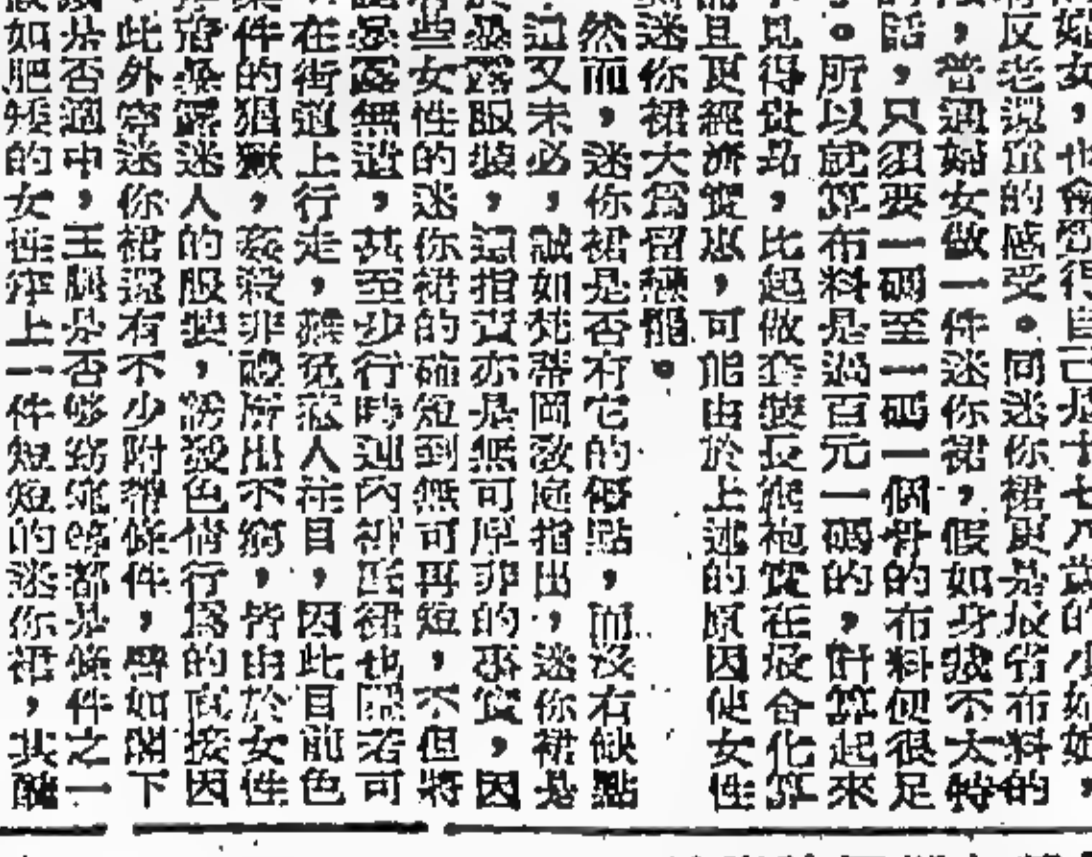 婦女，也會覺得自己是十七八歲的小姑娘，
有反老還童的感受。同迷你裙更是最省布料的
，普通婦女做一件迷你裙，假如身裁不太特
的話，只須要一碼至一碼一個骨的布料便很足
。所以就算布料是過百元一碼的，計算起來
見得貴昂，比起做套裝反旗袍實在最合化算
而且更經濟實惠，可能由於上述的原因使女性
對迷你裙大爲留戀罷。
然而，迷你裙是否有它的優點，而沒有缺點
這又未必，誠如梵蒂岡敎庭指出，迷你裙是
暴露服裝，這指責亦是無可厚非的事實，因
有些女性的迷你裙的確短到無可再短，不但將
暴露無遺，甚至步行時連內褲底裙也關若可
在街道上行走，難免惹人注目，因此目前色
案件的猖獗，姦殺非禮所出不窮，皆由於女性
穿着暴露迷人的服裝，誘發色情行爲的直接因
此外穿迷你裙還有不少附帶條件，譬如閣下
是否適中，玉腿是否够窈窕等都是條件之一
假如肥矮的女性穿上一件短短的迷你裙，其醜